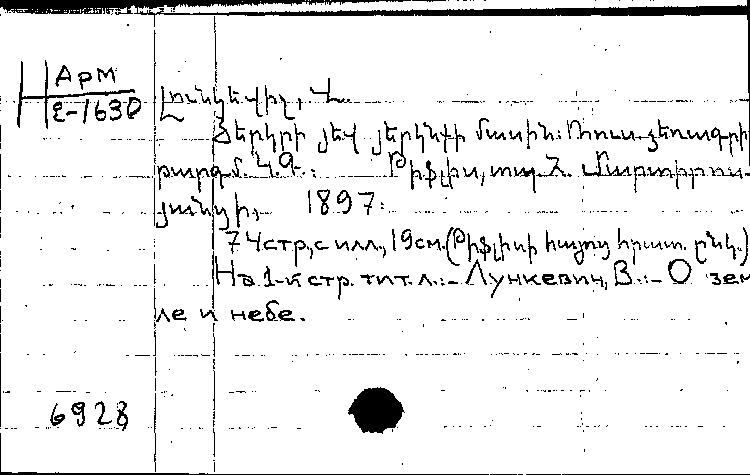 Арм
Ε-1630
Լունկեվիչ, Վ.
Յերկրի յեվ յերկնքի մասին: Ռուս. ձեռագրի
թարգմ. Կ.Գ.: Թիֆլիս, տպ. Հ. Մարտիրոս-
յանցի, 1897.
74стр, с илл., 19см. (Թիֆլիսի հայոց հրատ. ընկ.)
На 1-й стр. тит. л.:- Лункевич, В.:- О зем
ле и небе.
6928